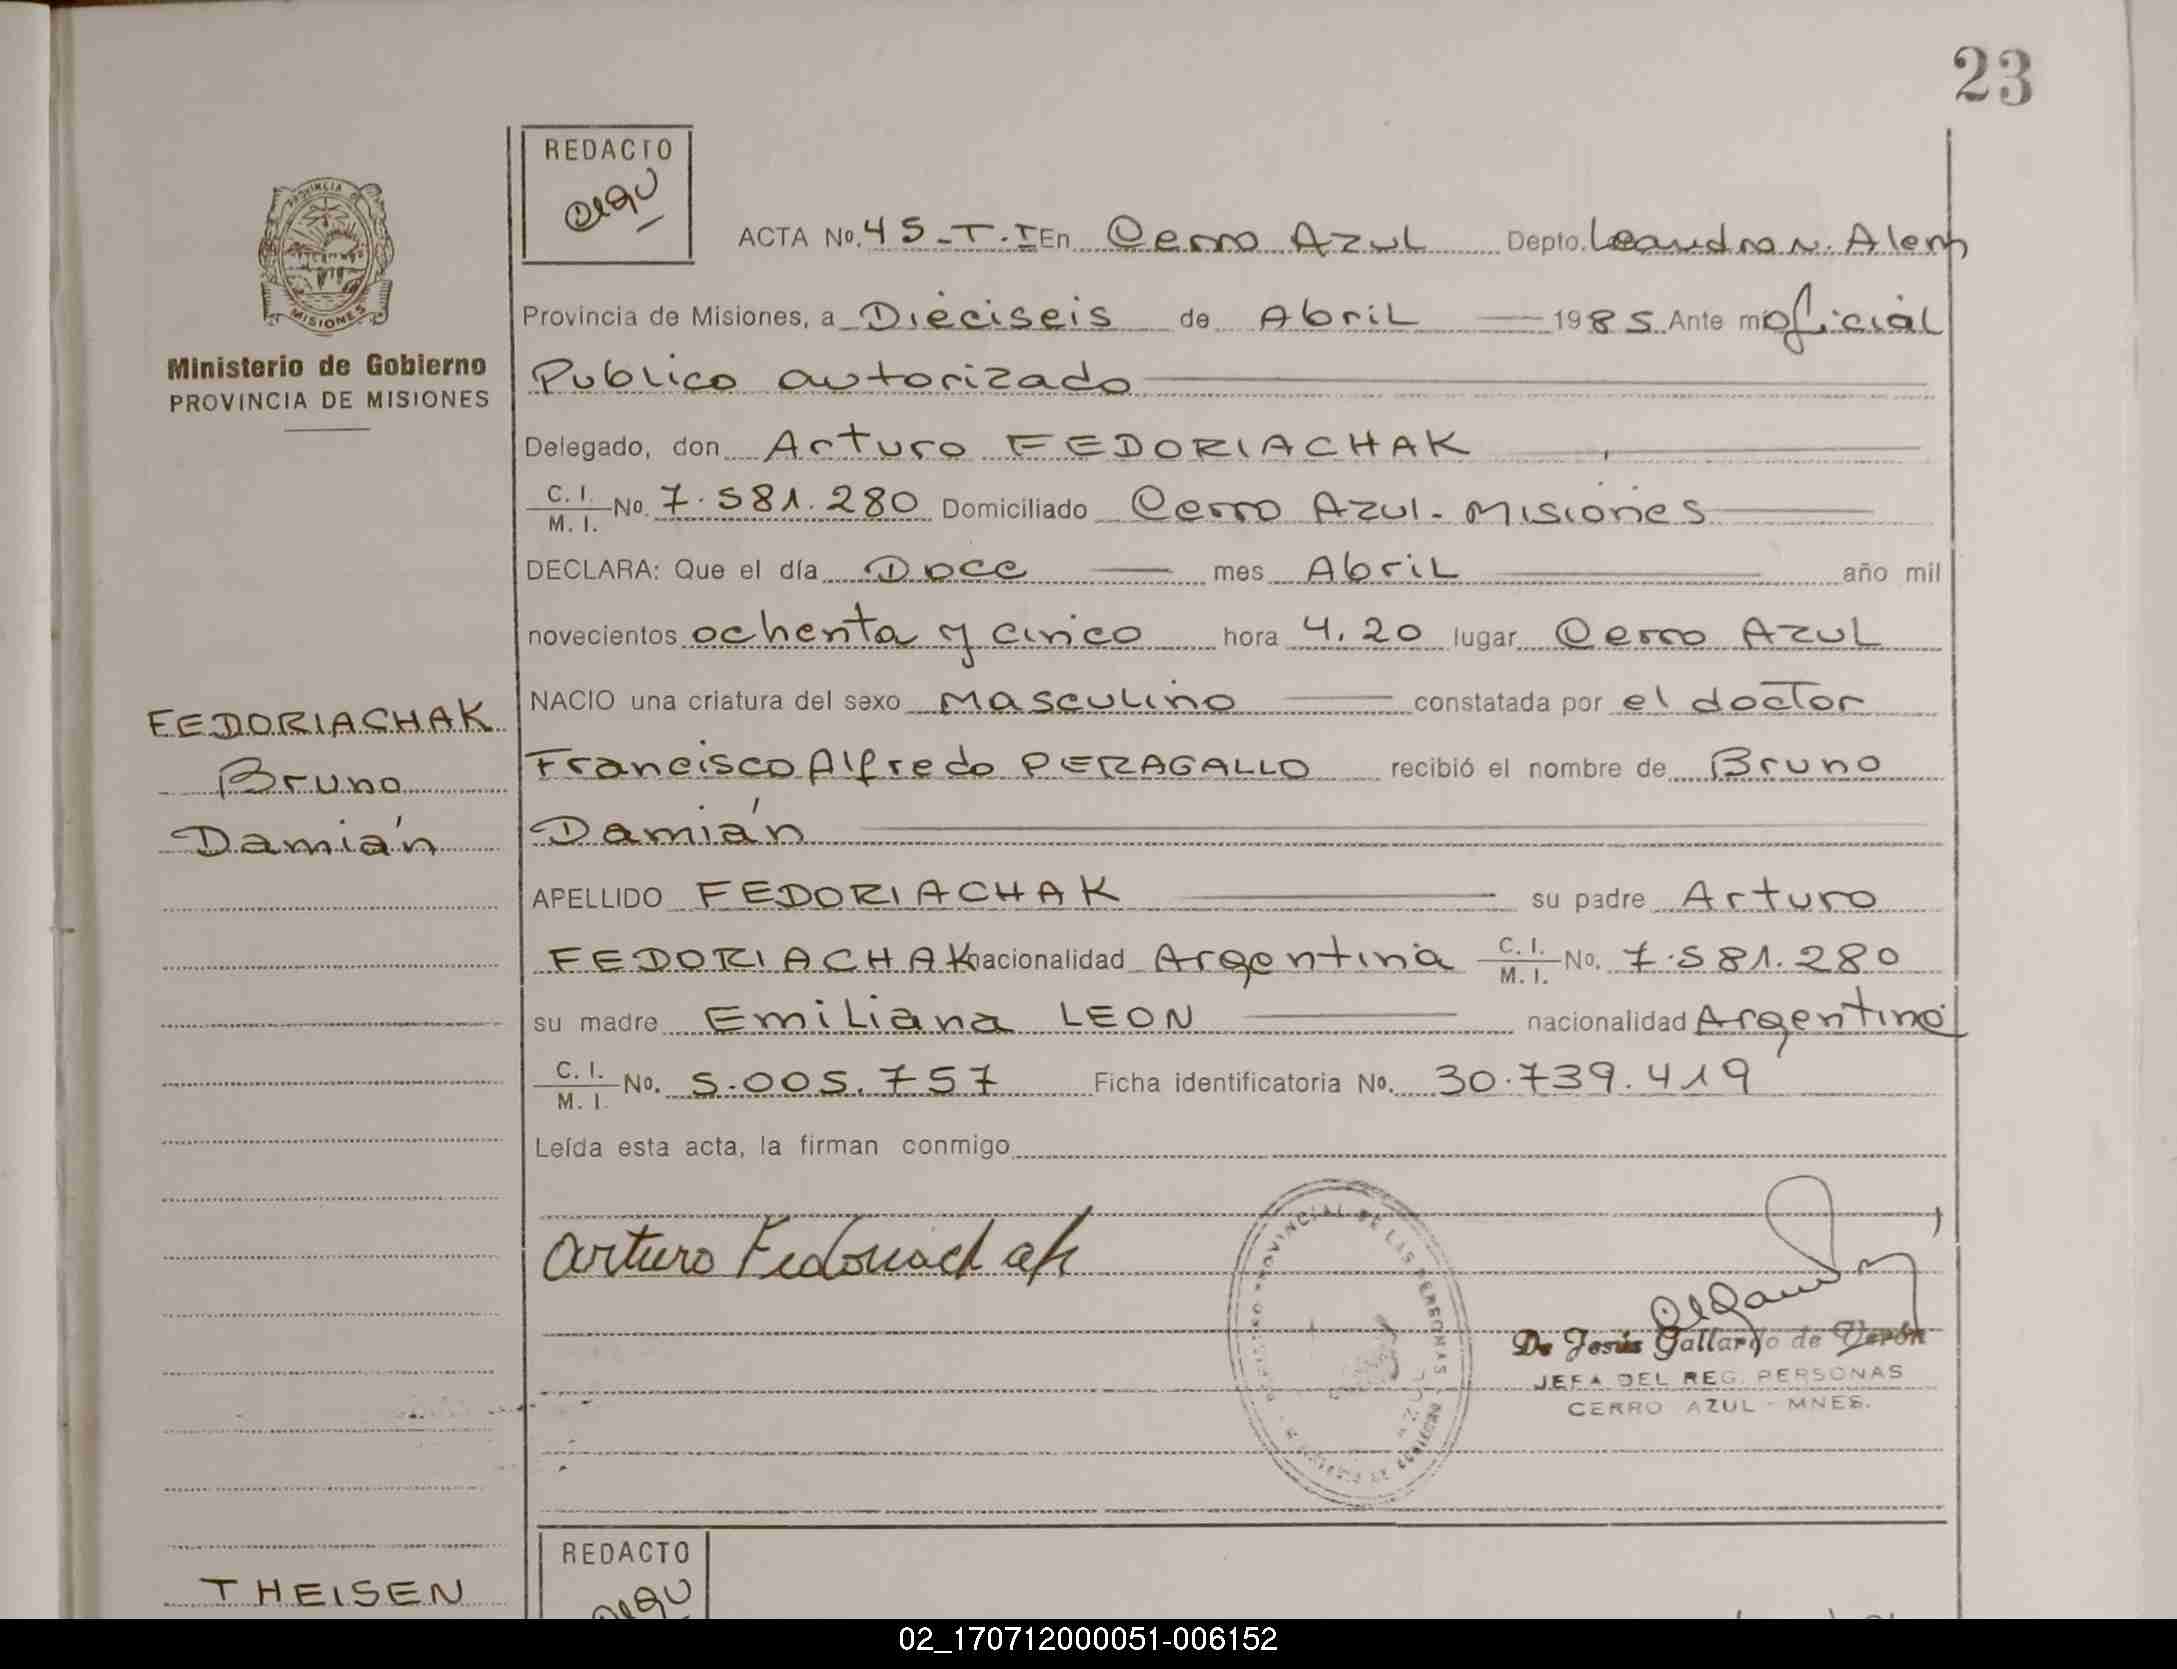 23
REDACTO
PROVINCIA DE
MISIONES
Ministerio de Gobierno
PROVINCIA DE MISIONES
ACTA No. 45-T.I En Cerro Azul Depto. Leandro N. Alem
Provincia de Misiones, a Dieciseis de Abril 1985 Ante mi Oficial
Publico autorizado
Delegado, don Arturo FEDORIACHAK
C. I. / M. I. No. 7.581.280 Domiciliado Cerro Azul - Misiones
DECLARA: Que el día Doce mes Abril año mil
novecientos ochenta y cinco hora 4.20 lugar Cerro Azul
NACIO una criatura del sexo Masculino constatada por el doctor
Francisco Alfredo PERAGALLO recibió el nombre de Bruno
Damián
APELLIDO FEDORIACHAK su padre Arturo
FEDORIACHAK nacionalidad Argentina C. I. / M. I. No. 7.581.280
su madre Emiliana LEON nacionalidad Argentina
C. I. / M. I. No. 5.005.757 Ficha identificatoria No. 30.739.419
Leída esta acta, la firman conmigo
FEDORIACHAK
Bruno
Damián
Arturo Fedoriachak
PROVINCIAL DE LAS PERSONAS
De Jesús Gallardo de Verón
JEFA DEL REG. PERSONAS
CERRO AZUL - MNES.
REDACTO
THEISEN
02_170712000051-006152